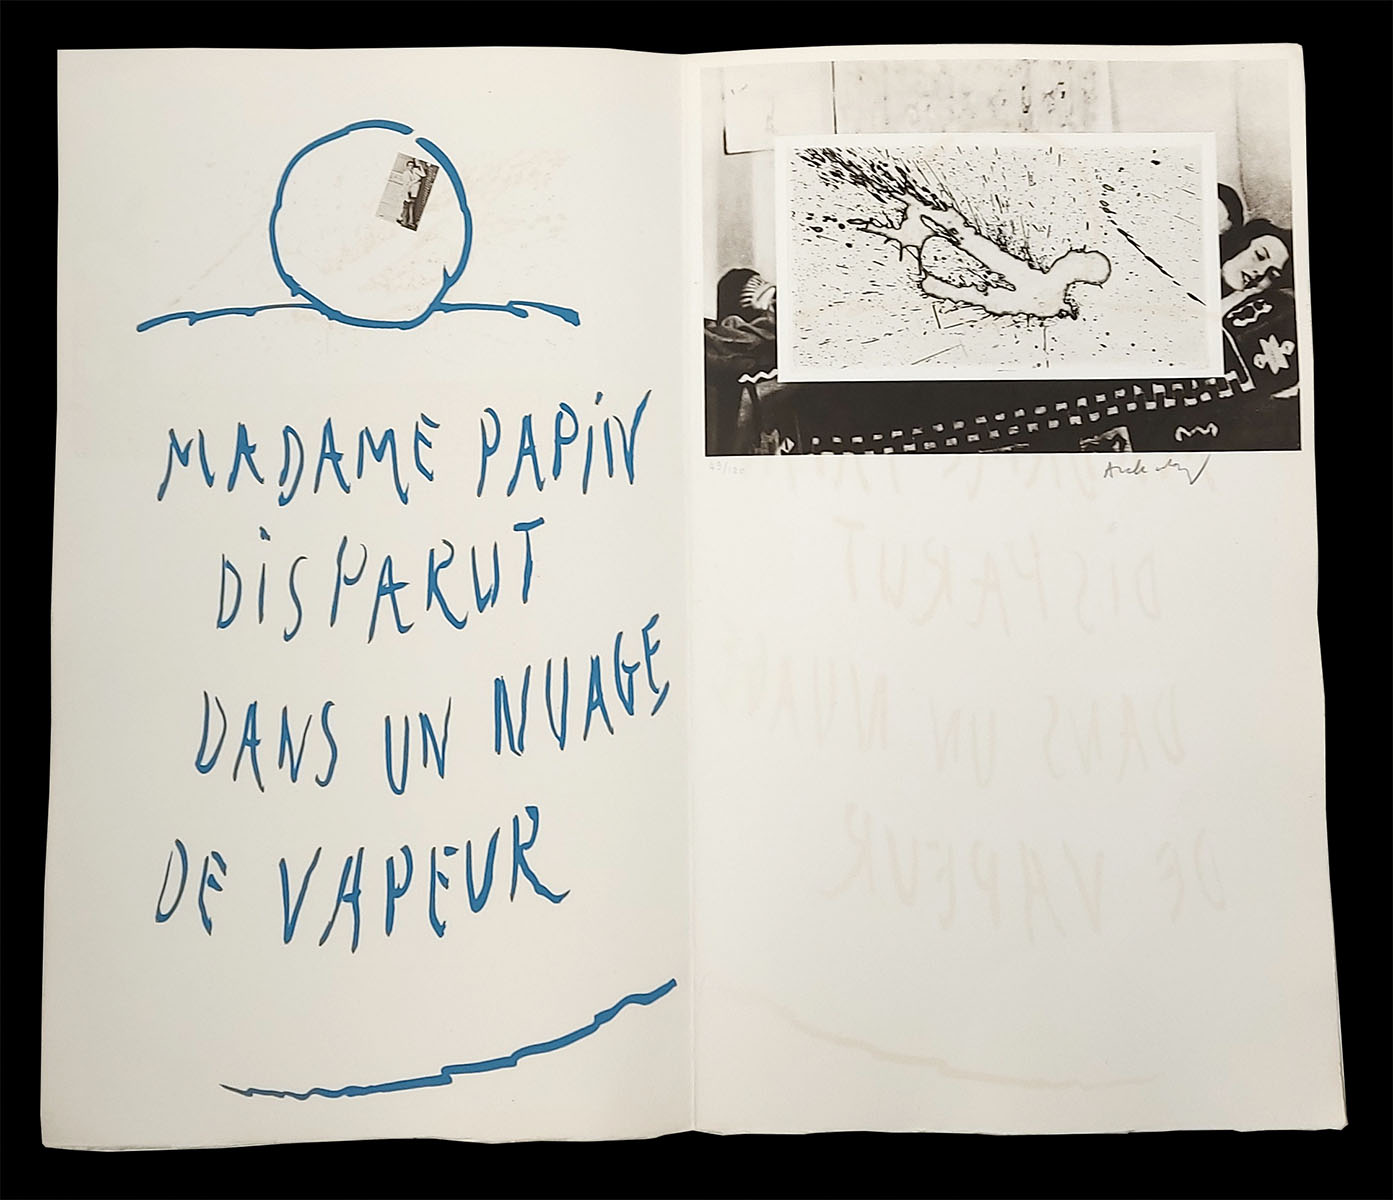 MADAME PAPiN
DiSPARUT
DANS UN NUAGE
DE VAPEUR
49/120